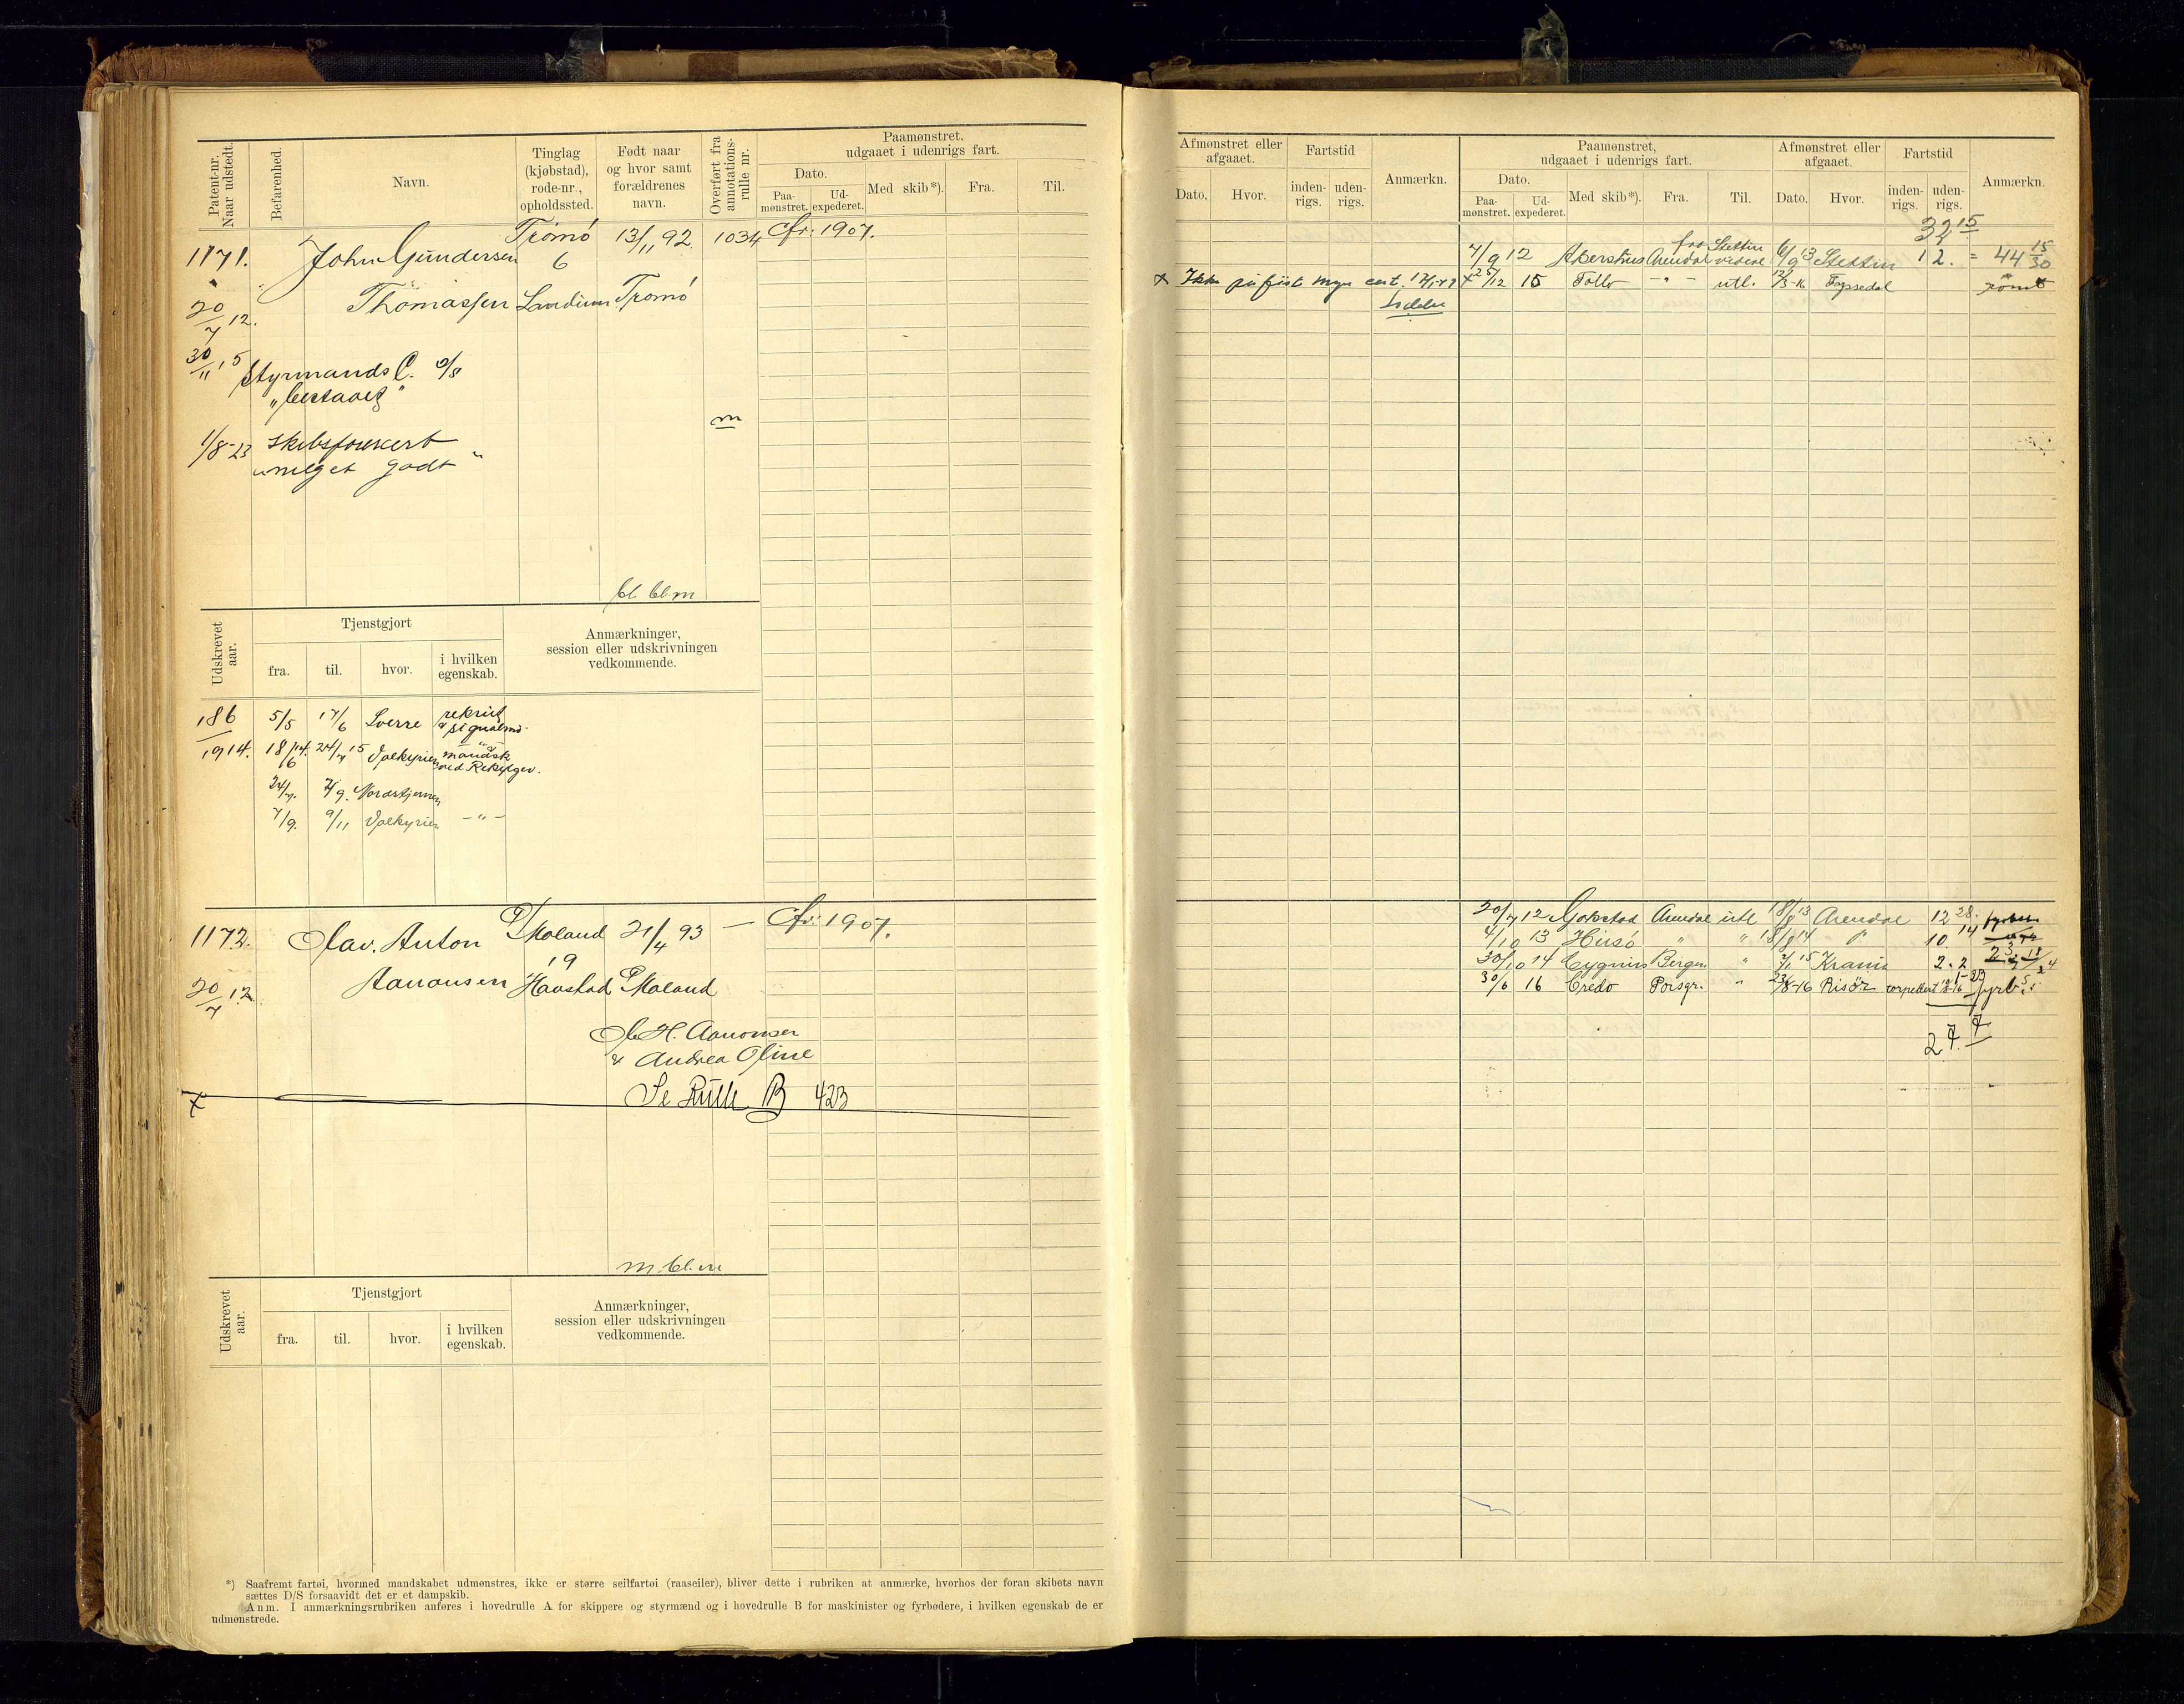 Patent-nr. Naar udstedt.
Befarenhed.
Navn.
Tinglag (kjøbstad), rode-nr., opholdssted.
Født naar og hvor samt forældrenes navn.
Overført fra annotations-rulle nr.
Paamønstret, udgaaet i udenrigs fart.
Dato.
Paa-mønstret.
Ud-expederet.
Med skib*).
Fra.
Til.
1171.
John Gundersen
Tromö
6
13/11 92.
1034
Cfr: 1907.
20/7 12.
Thomassen
Sandum
Tromö
30/11 15
Styrmands C. o/s
1/8-23
skibsførercert
"meget godt"
m
bl. bl. m
Udskrevet aar.
Tjenstgjort
fra.
til.
hvor.
i hvilken egenskab.
Anmærkninger, session eller udskrivningen vedkommende.
186/1914.
5/5
17/6
Sverre
rekrut
& signalmd.
18/6 14.
24/7 15
Valkyrien
24/7.
7/9.
Nordstjernen
7/9.
9/11
Valkyrien
- " -
1172.
Olav. Anton
Ø/Moland
19
21/4 93
—
Cfr: 1907.
20/7 12.
Aanonsen
Havstad
Ø Moland
Ole H. Aanonsen
& Andrea Oline
x
Se Rulle B 423
m. bl. m
Udskrevet aar.
Tjenstgjort
fra.
til.
hvor.
i hvilken egenskab.
Anmærkninger, session eller udskrivningen vedkommende.
*) Saafremt fartøi, hvormed mandskabet udmønstres, ikke er større seilfartøi (raaseiler), bliver dette i rubriken at anmærke, hvorhos der foran skibets navn
sættes D/S forsaavidt det er et dampskib.
Anm. I anmærkningsrubriken anføres i hovedrulle A for skippere og styrmænd og i hovedrulle B for maskinister og fyrbødere, i hvilken egenskab de er
udmønstrede.
Afmønstret eller afgaaet.
Dato.
Hvor.
Fartstid
inden-rigs.
uden-rigs.
Anmærkn.
Paamønstret, udgaaet i udenrigs fart.
Dato.
Paa-mønstret.
Ud-expederet.
Med skib*).
Fra.
Til.
Afmønstret eller afgaaet.
Dato.
Hvor.
Fartstid
inden-rigs.
uden-rigs.
Anmærkn.
32 15
7/9 12
Akershus
Arendal
fra Stettin
videre
6/9 13
Stettin
12. = 44 15/30
x Ikke
25/12 15
Follo
- " -
utl.
Topsedal
rømt
20/7 12
Gokstad
Arendal
utl
18/8 13
Arendal
12 28.
4/10 13
Hisö
"
"
18/8 14
"
10. 14
30/10 14
Cygnus
Bergen
"
15
2. 2
30/6 16
Credo
Porsgr.
"
23/8-16
Risör
torpedert
fyrb.
27. 7